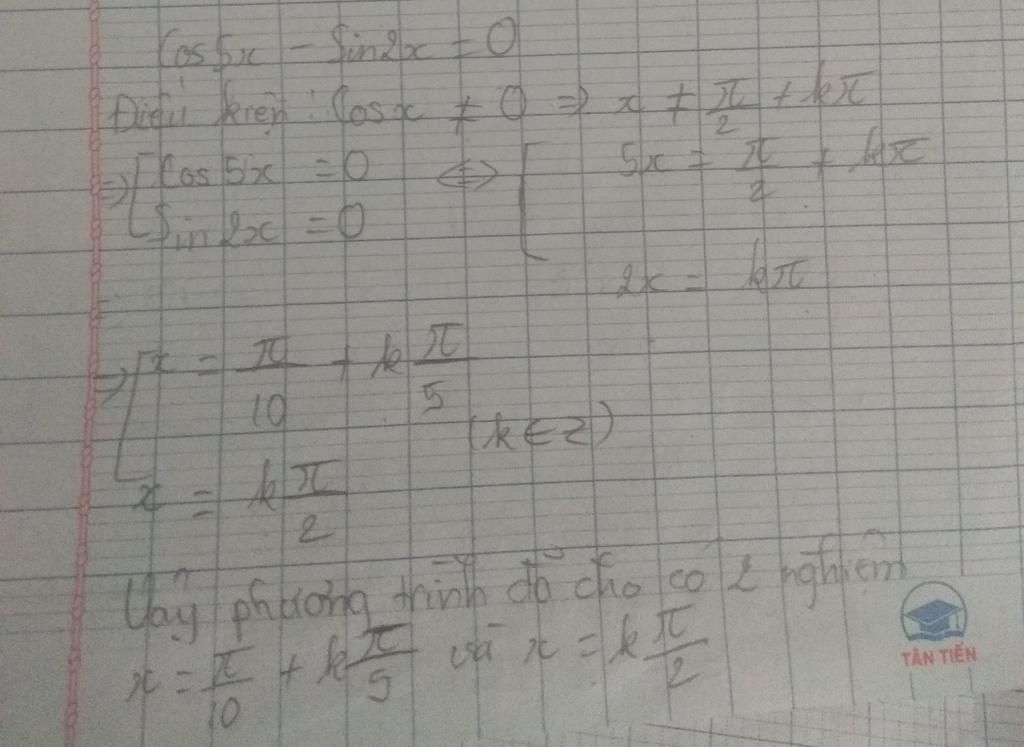 Cos5x - Sin2x = 0
Điều kiện: Cosx ≠ 0 => x ≠ π/2 + kπ
=> [ Cos 5x = 0 <=> [ 5x = π/2 + kπ
Sin 2x = 0
2x = kπ
=> [ x = π/10 + k π/5
(k ∈ Z)
x = k π/2
Vậy phương trình đã cho có 2 nghiệm
x = π/10 + k π/5 và x = k π/2
TÂN TIẾN